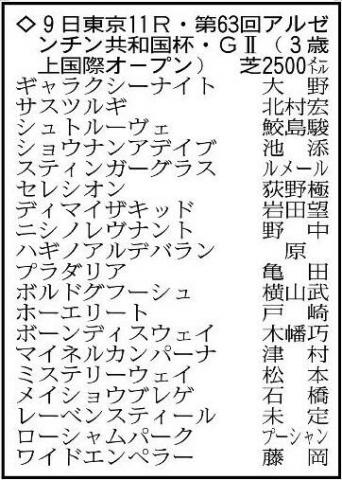 ◇9日東京11R・第63回アルゼ
ンチン共和国杯・GⅡ（3歳
上国際オープン） 芝2500㍍
ギャラクシーナイト 大野
サスツルギ 北村宏
シュトルーヴェ 鮫島駿
ショウナンアデイブ 池添
スティンガーグラス ルメール
セレシオン 荻野極
ディマイザキッド 岩田望
ニシノレヴナント 野中
ハギノアルデバラン 原
プラダリア 亀田
ボルドグフーシュ 横山武
ホーエリート 戸崎
ボーンディスウェイ 木幡巧
マイネルカンパーナ 津村
ミステリーウェイ 松本
メイショウブレゲ 石橋
レーベンスティール 未定
ローシャムパーク プーシャン
ワイドエンペラー 藤岡